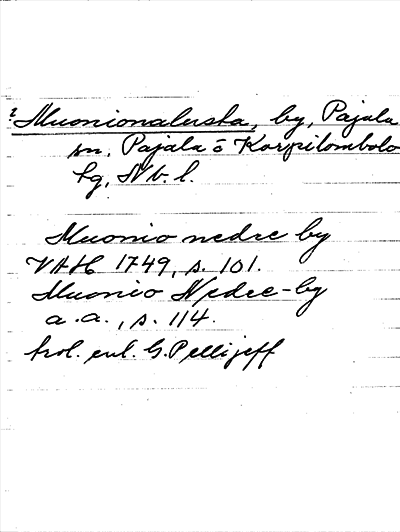 Muonionalusta, by, Pajala
sn, Pajala o Korpilombolo
tg, Nb. l.
Muonio nedre by
VAH 1749, s. 101.
Muonio Nedre-by
a. a., s. 114.
enl. G. Pellijeff